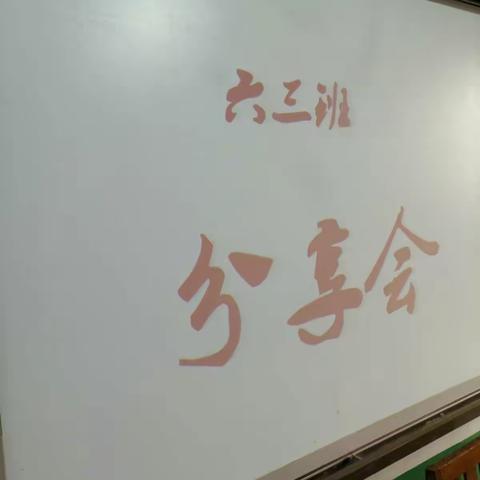 六三班
分享会